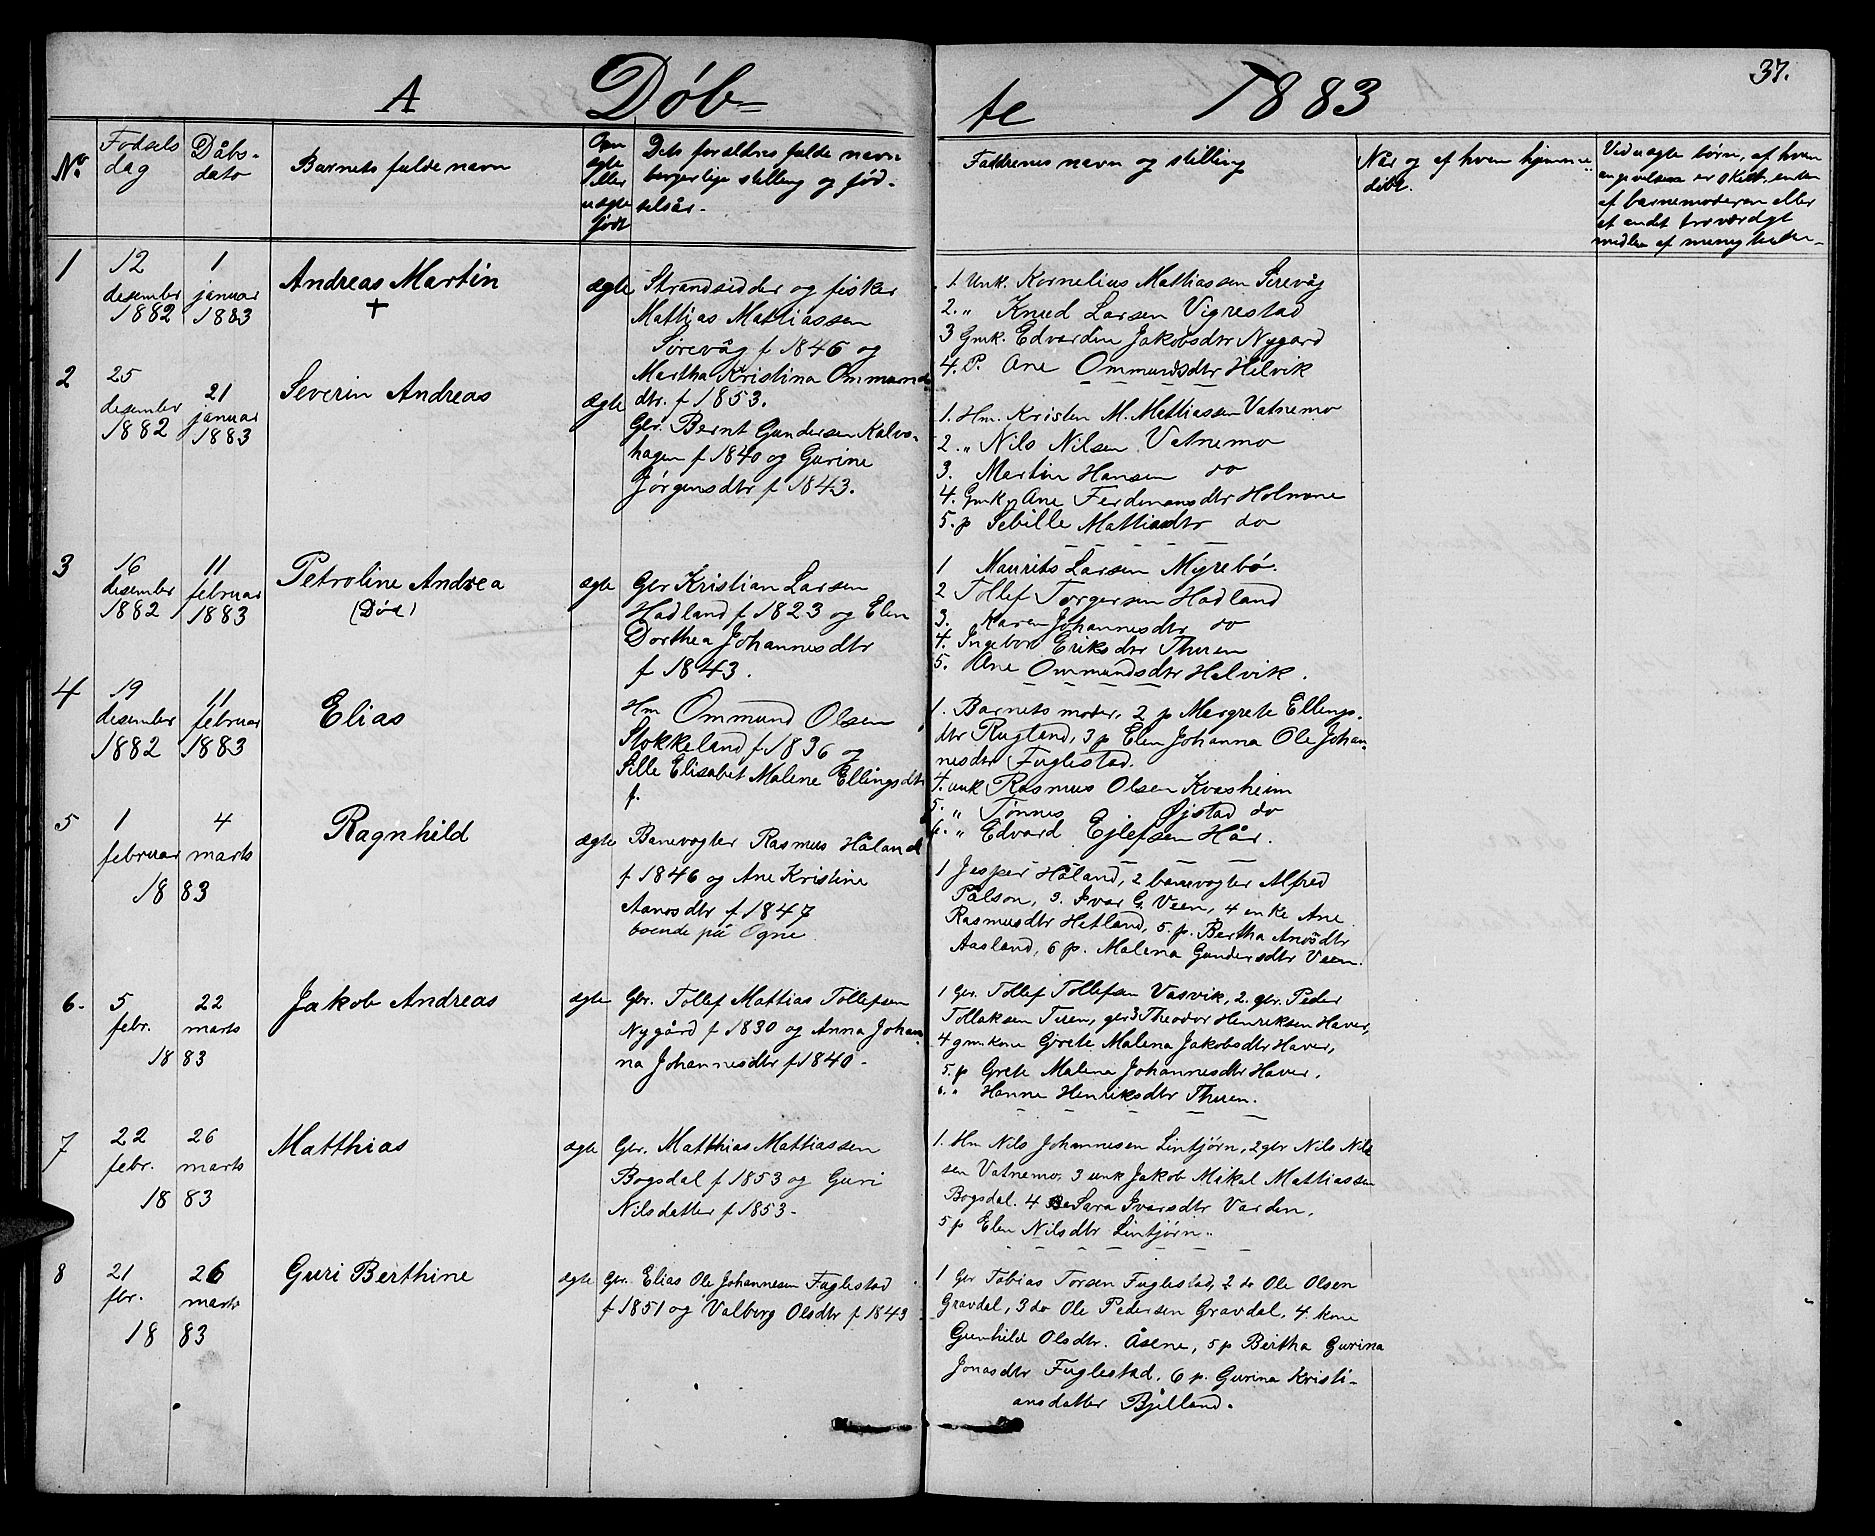 A Døb=
te 1883
37.
No
Fødsels
dag
Dåbs-
dato
Barnets fulde navn
Om
ægte
eller
uægte
født
Dets forældres fulde navn
borgerlige stilling og fød-
selsår.
Faddernes navn og stilling
Når og af hvem hjemme
døbt.
Ved uægte børn, af hvem
angivelsen er skeet, enten
af barnemoderen eller
et andet troværdigt
medlem af menigheden
1
12
desember
1882
1
januar
1883
Andreas Martin
+
ægte
Strandsidder og fisker
Mattias Mattiassen
Sirevåg f 1846 og
Martha Kristina Ommunds
dtr. f 1853.
1. Unk. Kornelius Mattiassen Sirevåg
2. " Knud Larsen Vigrestad
3 Gmk. Edvardine Jakobsdtr Nygård
4. P. Ane Ommundsdtr Helvik
2
25
desember
1882
21
januar
1883
Severin Andreas
ægte
Gbr. Bernt Gundersen Kalvs-
hagen f 1840 og Gurine
Jørgensdtr f 1843.
1. Hm. Kristen M. Mattiassen Vatnemo
2. " Nils Nilsen Vatnemo
3. Martin Hansen do
4. Gmk Ane Ferdinansdtr Holmene
5. p Sebille Mattiasdtr do
3
16
desember
1882
11
februar
1883
Petroline Andrea
(Død)
ægte
Gbr Kristian Larsen
Hadland f 1823 og Elen
Dorthea Johannesdtr
f 1843.
1 Maurits Larsen Myrebø.
2 Tollef Torgersen Hadland
3. Karen Johannesdtr do
4. Ingebor Eriksdtr Thuen
5. Ane Ommundsdtr Helvik.
4
19
desember
1882
11
februar
1883
Elias
Hm Ommund Olsen
Stokkeland f 1836 og
Sille Elisabet Malene Ellingsdtr
f.
1. Barnets moder, 2 p Margrete Ellings-
dtr Rugland, 3 p Elen Johanna Ole Johan-
nesdtr Fuglestad.
4. unk Rasmus Olsen Kvasheim
5. " Tønnes Øjstad do
6. " Edvard Ejlefsen Hår.
5
1
februar
4
marts
18 83
Ragnhild
ægte
Banevogter Rasmus Håland
f 1846 og Ane Kristine
Aanosdtr f 1847
boende på Ogne
1 Jesper Håland, 2 banevogter Alfred
Pålson, 3. Ivar G. Veen, 4 enke Ane
Rasmusdtr Hetland, 5. p. Bertha Anosdtr
Aasland, 6 p. Malena Gundersdtr Veen.
6.
5
febr.
22
marts
18 83
Jakob Andreas
ægte
Gbr. Tollef Mattias Tollefsen
Nygård f 1830 og Anna Johan-
na Johannesdtr f 1840.
1 Gbr. Tollef Tollefsen Vasvik, 2. gbr. Peder
Tollaksen Tuen, gbr 3 Theodor Henriksen Haver,
4 gm. kone Grete Malena Jakobsdtr Haver,
5. p Grete Malena Johannesdtr Haver.
6. " Hanne Henriksdtr Thuen.
7
22
febr.
26
marts
18 83
Matthias
ægte
Gbr. Matthias Mattiassen
Bogsdal f 1853 og Guri
Nilsdatter f 1853.
1. Hm Nils Johannesen Lintjørn, 2 gbr Nils Nil-
sen Vatnemo, 3 unk Jakob Mikal Mattiassen
Bogsdal. 4 Sara Ivarsdtr Varden.
5 p Elen Nilsdtr Lintjørn.
8
21
fbr.
26
marts
18 83
Guri Berthine
ægte
Gbr. Elias Ole Johannesen Fuglestad
f 1851 og Valborg Olsdtr f 1843
1 Gbr Tobias Torsen Fuglestad, 2 do Ole Olsen
Gravdal, 3 do Ole Pedersen Gravdal, 4. kone
Gunhild Olsdtr. Åsene, 5 p Bertha Gurina
Jonasdtr Fuglestad, 6 p. Gurina Kristi-
ansdatter Bjelland.